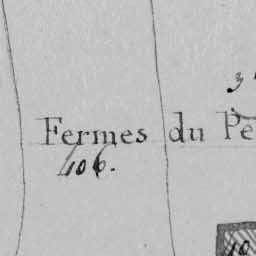 3
Fermes du Pe
406.
10